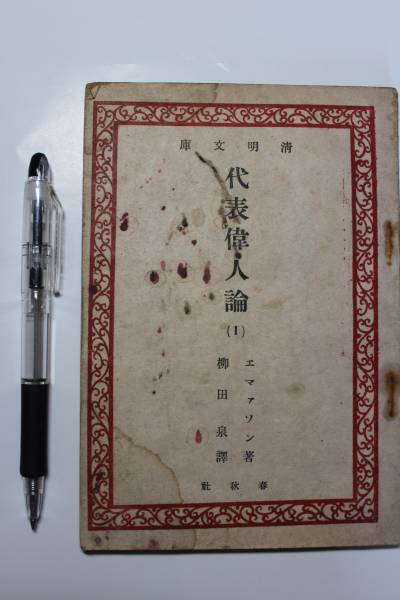 庫文明清
代表偉人論
(I)
エマァソン著
柳田泉譯
社秋春